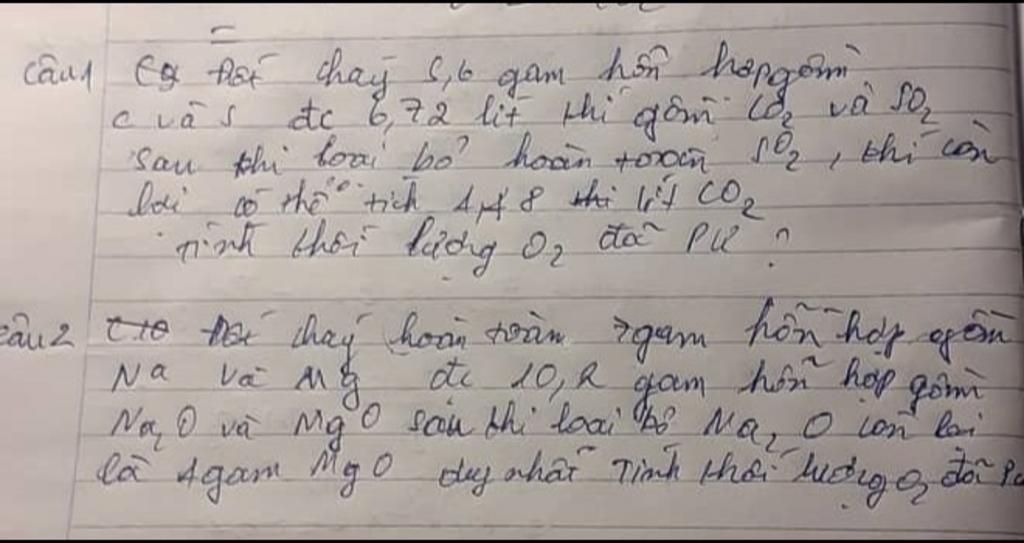 Câu 1 Đốt cháy 5,6 gam hỗn hợp gồm
C và S đc 6,72 lít khí gồm CO₂ và SO₂
sau khi loại bỏ hoàn toàn SO₂, khí còn
lại có thể tích 4,48 lít CO₂
Tính khối lượng O₂ đã PƯ ?
Câu 2 Đốt cháy hoàn toàn 7 gam hỗn hợp gồm
Na và Mg đc 10,2 gam hỗn hợp gồm
Na₂O và MgO sau khi loại bỏ Na₂O còn lại
là 4 gam MgO duy nhất Tính khối lượng O₂ đã